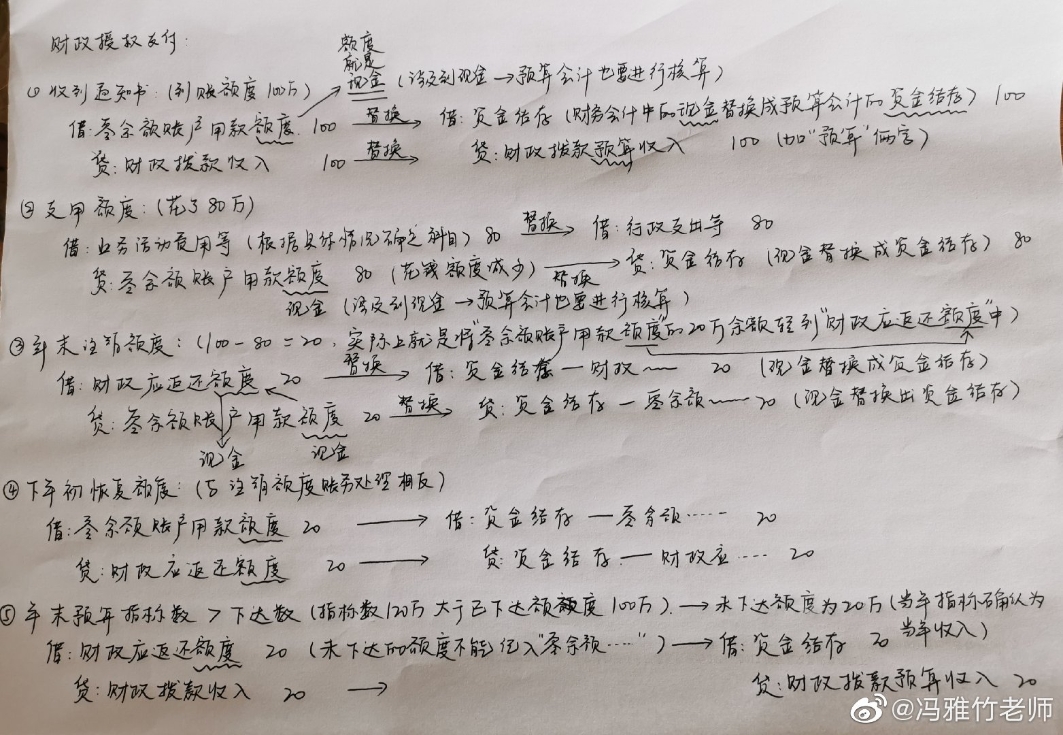 财政授权支付：
额度
就是
现金（涉及到现金→预算会计也要进行核算）
① 收到通知书：（到账额度100万）
借：零余额账户用款额度 100 替换→ 借：资金结存（财务会计中的现金替换成预算会计的资金结存）100
贷：财政拨款收入 100 替换→ 贷：财政拨款预算收入 100（加“预算”俩字）
② 支用额度：（花了80万）
借：业务活动费用等（根据具体情况确定科目）80 替换→ 借：行政支出等 80
贷：零余额账户用款额度 80（花钱额度减少）替换→ 贷：资金结存（现金替换成资金结存）80
现金（涉及到现金→预算会计也要进行核算）
③ 年末注销额度：（100-80=20，实际上就是将“零余额账户用款额度”的20万余额转到“财政应返还额度”中）
借：财政应返还额度 20 替换→ 借：资金结存—财政～～ 20（现金替换成资金结存）
贷：零余额账户用款额度 20 替换→ 贷：资金结存—零余额～～20（现金替换出资金结存）
现金 现金
④ 下年初恢复额度：（与注销额度账务处理相反）
借：零余额账户用款额度 20 → 借：资金结存—零余额…… 20
贷：财政应返还额度 20 → 贷：资金结存—财政应…… 20
⑤ 年末预算指标数＞下达数（指标数120万大于已下达额度100万）→未下达额度为20万（当年指标确认为
当年收入）
借：财政应返还额度 20（未下达的额度不能记入“零余额……”）→借：资金结存 20
贷：财政拨款收入 20 → 贷：财政拨款预算收入 20
@冯雅竹老师